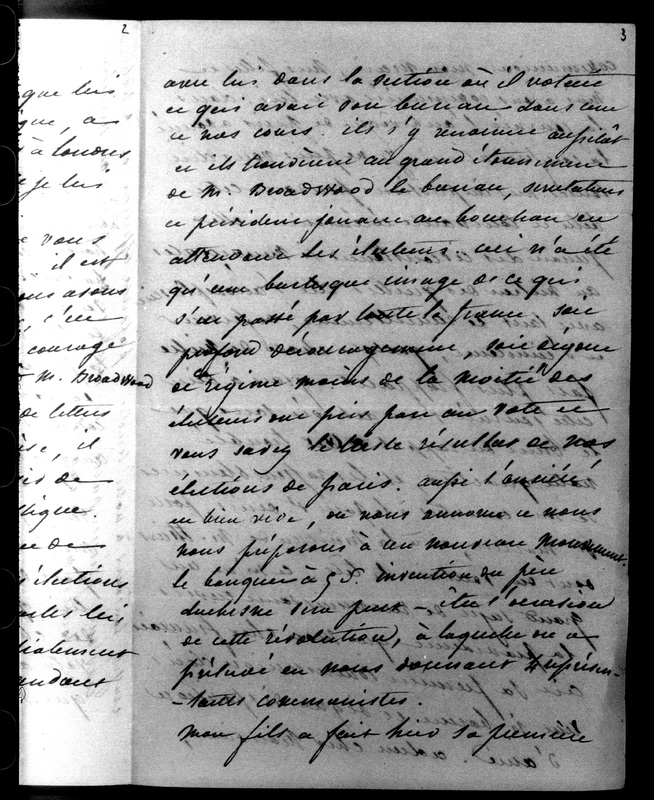 2
que les
que, a
à Londres
je lui
vous
il est
ous avons
s'en
courage
M. Broadwood
de lettres
il
de
tique.
de
élections
les
dialement
endant
3
avec lui dans la section où il votait
ce qui avait son bureau dans une
de nos cours. ils s'y rendirent aussitôt
et ils trouvèrent au grand étonnement
de M. Broadwood le bureau, secrétaires
et président jouant au bouchon en
attendant les électeurs. ceci n'a été
qu'une burlesque image de ce qui
s'est passé par toute la france, soit
profond découragement, soit
de régime moins de la moitié des
électeurs ont pris part au vote et
vous savez le triste résultat de nos
élections de paris. aussi l'anxiété
est bien vive, on nous annonce et nous
nous préparons à un nouveau mouvement.
le banquet à 5 s. invention du père
duchesne sera peut-être l'occasion
de cette révolution, à laquelle on a
prélué en nous donnant représen-
-tants communistes.
mon fils a fait hier sa première